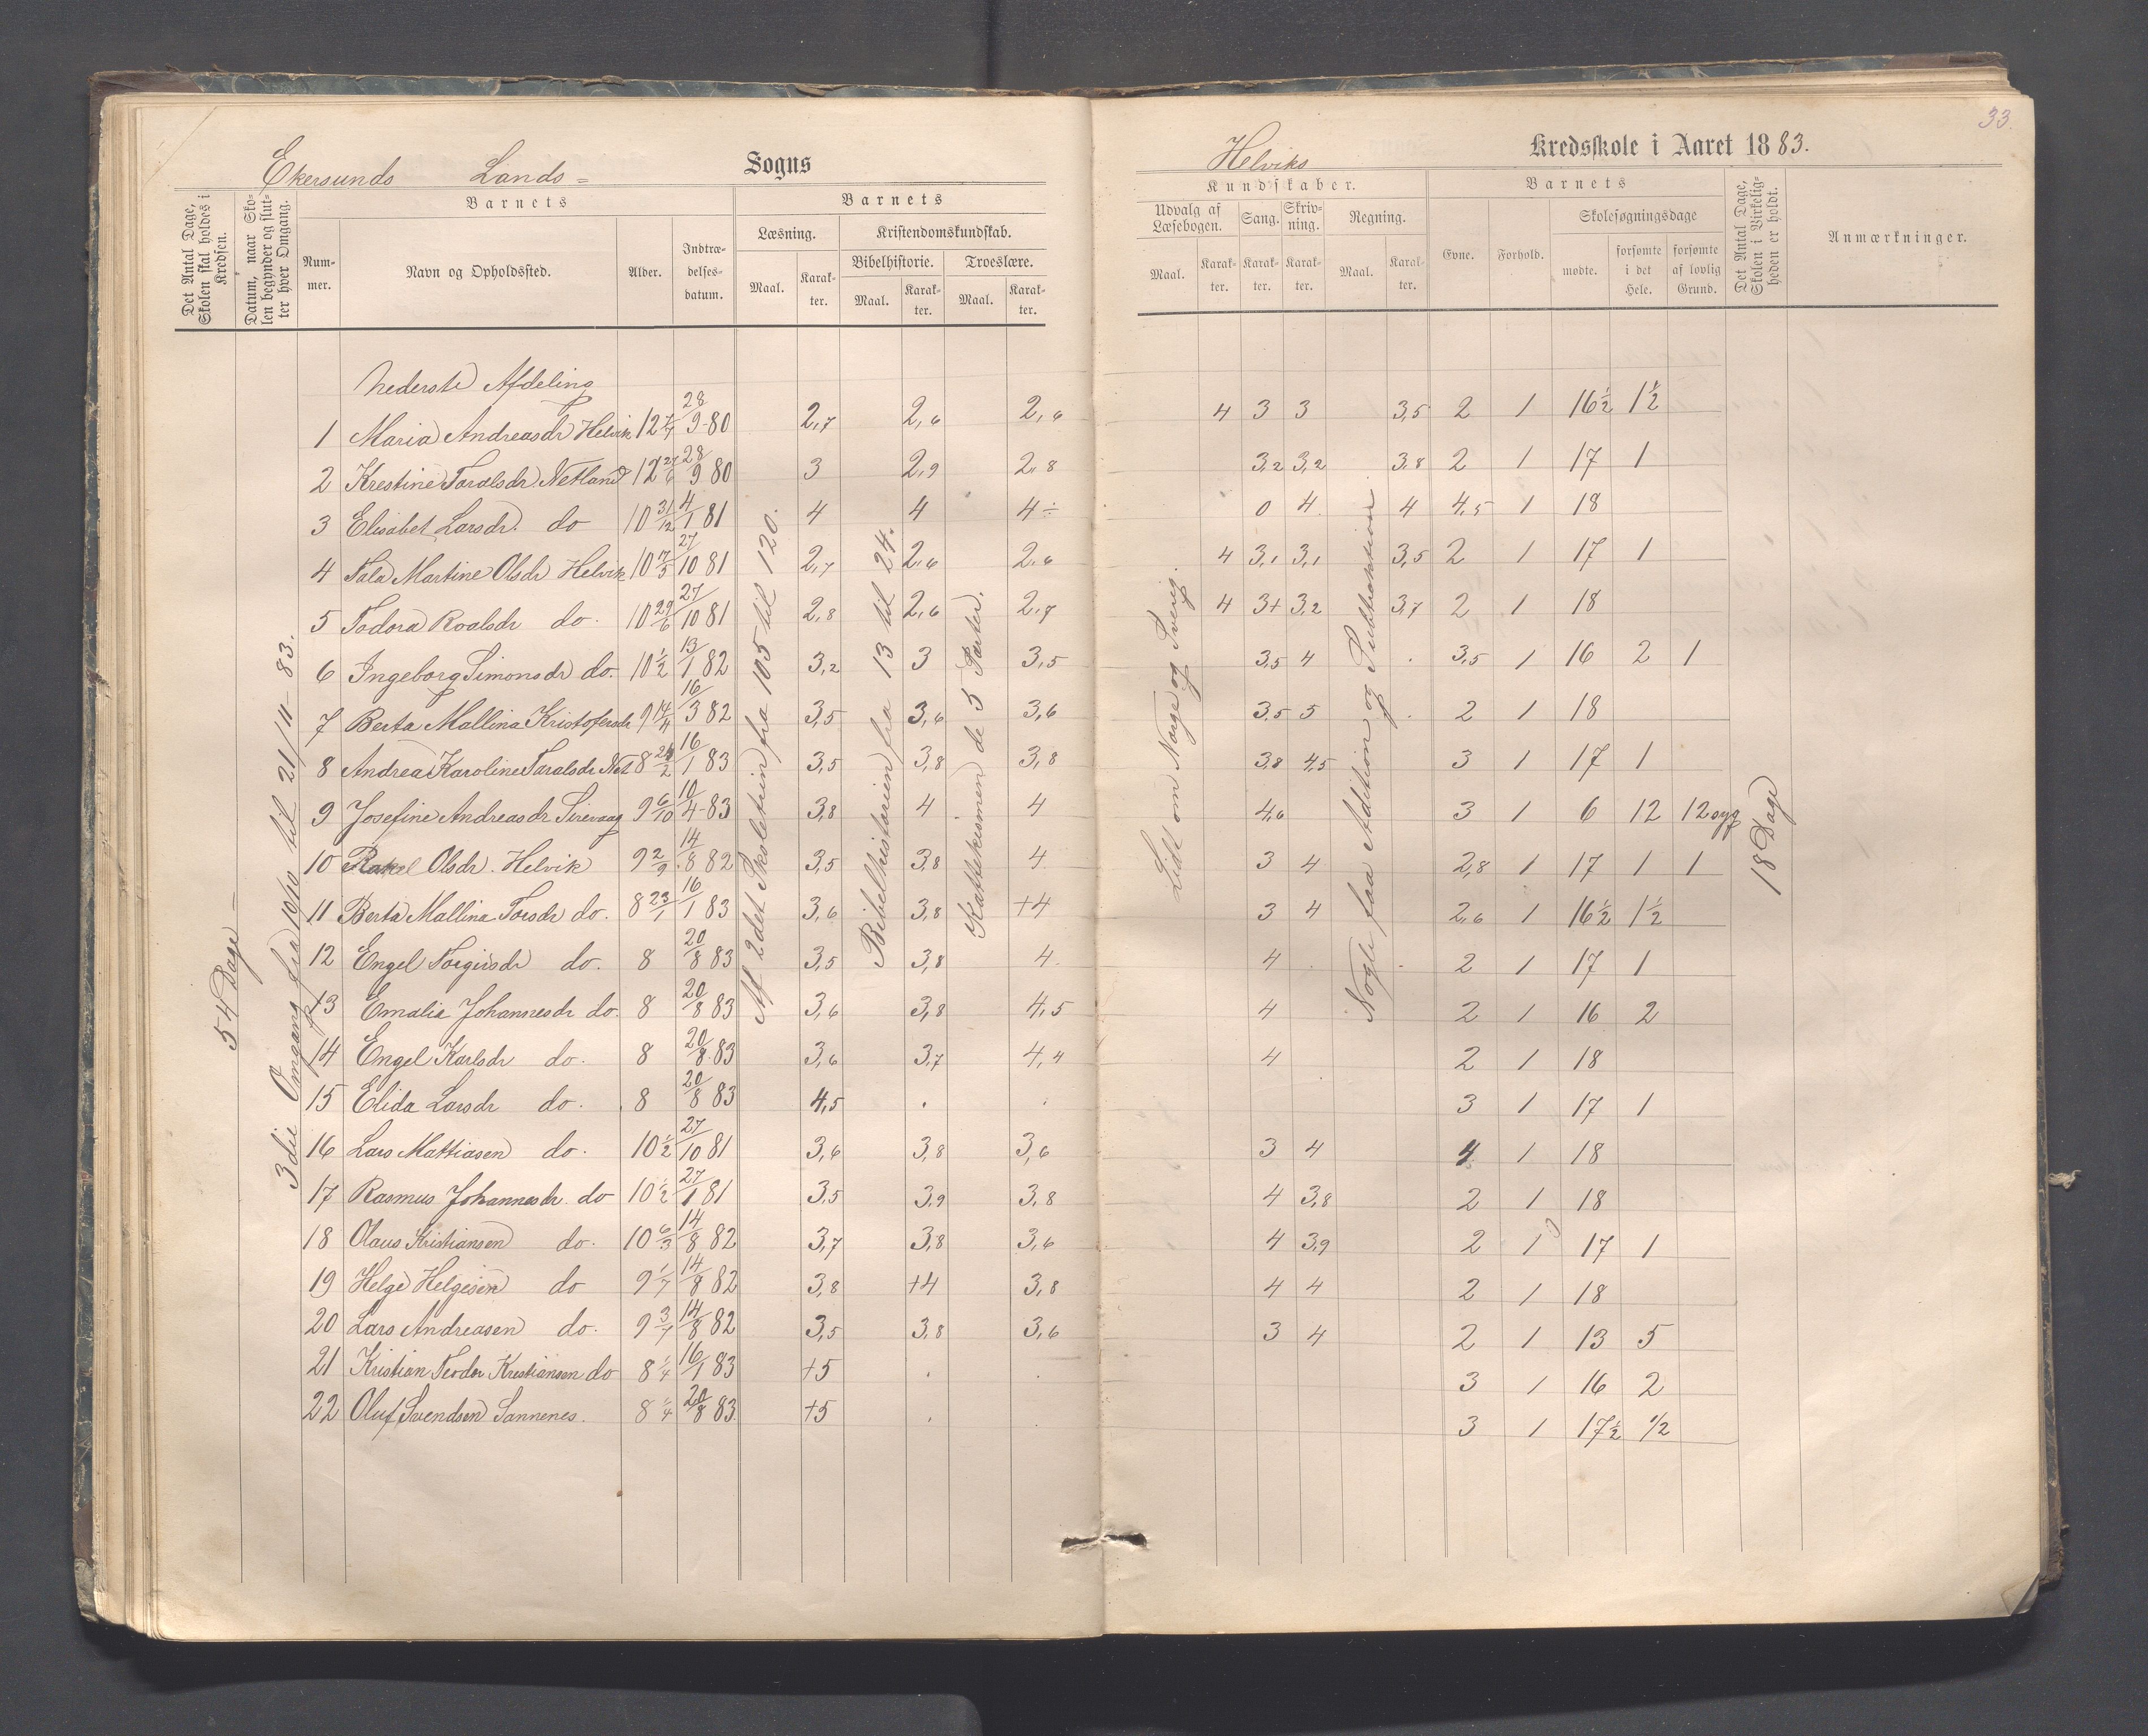 33.
Ekersunds Lands= Sogns
Helviks Kredsskole i Aaret 1883.
Det Antal Dage, Skolen skal holdes i Kredsen.
Datum, naar Skolen begynder og slutter hver Omgang.
Barnets
Nummer.
Navn og Opholdssted.
Alder.
Indtrædelsesdatum.
Barnets
Læsning.
Maal.
Karakter.
Kristendomskundskab.
Bibelhistorie.
Maal.
Karakter.
Troeslære.
Maal.
Karakter.
Kundskaber.
Udvalg af Læsebogen.
Maal.
Karakter.
Sang.
Karakter.
Skrivning.
Karakter.
Regning.
Maal.
Karakter.
Barnets
Evne.
Forhold.
Skolesøgningsdage
mødte.
forsømte i det Hele.
forsømte af lovlig Grund.
Det Antal Dage, Skolen i Virkeligheden er holdt.
Anmærkninger.
54 Dage
3die Omgang fra 10/10 til 21/11 83.
Af 2det Skoletrin fra 105 til 120.
Bibelhistorien fra 13 til 24.
Kattekismen de 5 Parter.
Lidt om Norge og Sverig.
Nogle faa Addition og Subtraktion
18 Dage
Nederste Afdeling
1 Maria Andreasdr Helvik 12 28/9 80 2,7 2,6 2,6 4 3 3 3,5 2 1 16½ 1½
2 Krestine Taralsdr. Netland 12 28/9 80 3 2,9 2,8 3,2 3,2 3,8 2 1 17 1
3 Elisabet Larsdr. do 10 31/12 4/1 81 4 4 4÷ 0 4 4 4,5 1 18
4 Tala Martine Olsdr Helvik 10 7/5 27/10 81 2,7 2,6 2,6 4 3,1 3,1 3,5 2 1 17 1
5 Todora Roalsdr do. 10 29/6 27/10 81 2,8 2,6 2,7 4 3+ 3,2 3,7 2 1 18
6 Ingeborg Simonsdr do. 10 ½ 13/1 82 3,2 3 3,5 3,5 4 3,5 1 16 2 1
7 Berta Mallina Kristofersdr 9 14/4 16/3 82 3,5 3,6 3,6 3,5 5 2 1 18
8 Andrea Karoline Taralsdr Net 8 16/1 83 3,5 3,8 3,8 3,8 4,5 3 1 17 1
9 Josefine Andreasdr Sirevaag 9 6/10 10/4 83 3,8 4 4 4,6 3 1 6 12 12 syg
10 Rakel Olsdr. Helvik 9 2/9 14/8 82 3,5 3,8 4 3 4 2,8 1 17 1 1
11 Berta Mallina Torsdr do. 8 23/1 16/1 83 3,6 3,8 +4 3 4 2,6 1 16½ 1½
12 Engel Torgirsdr do. 8 20/8 83 3,5 3,8 4. 4 2 1 17 1
13 Emalie Johannesdr do. 8 20/8 83 3,6 3,8 4,5 4 2 1 16 2
14 Engel Karlsdr do. 8 20/8 83 3,6 3,7 4,4 4 2 1 18
15 Elida Larsdr do. 8 20/8 83 4,5 3 1 17 1
16 Lars Mattiasen do. 10 ½ 27/10 81 3,6 3,8 3,6 3 4 4 1 18
17 Rasmus Johannesdr. do 10 ½ 27/1 81 3,5 3,9 3,8 4 3,8 2 1 18
18 Olaus Kristiansen do. 10 6/3 14/8 82 3,7 3,8 3,6 4 3,9 2 1 17 1
19 Helge Helgesen do 9 1/7 14/8 82 3,8 +4 3,8 4 4 2 1 18
20 Lars Andreasen do. 9 3/7 14/8 82 3,5 3,8 3,6 3 4 2 1 13 5
21 Kristian Teodor Krestiansen do 8 ¼ 16/1 83 +5 3 1 16 2
22 Oluf Svendsen Sannenes. 8 ¼ 20/8 83 +5 3 1 17½ ½